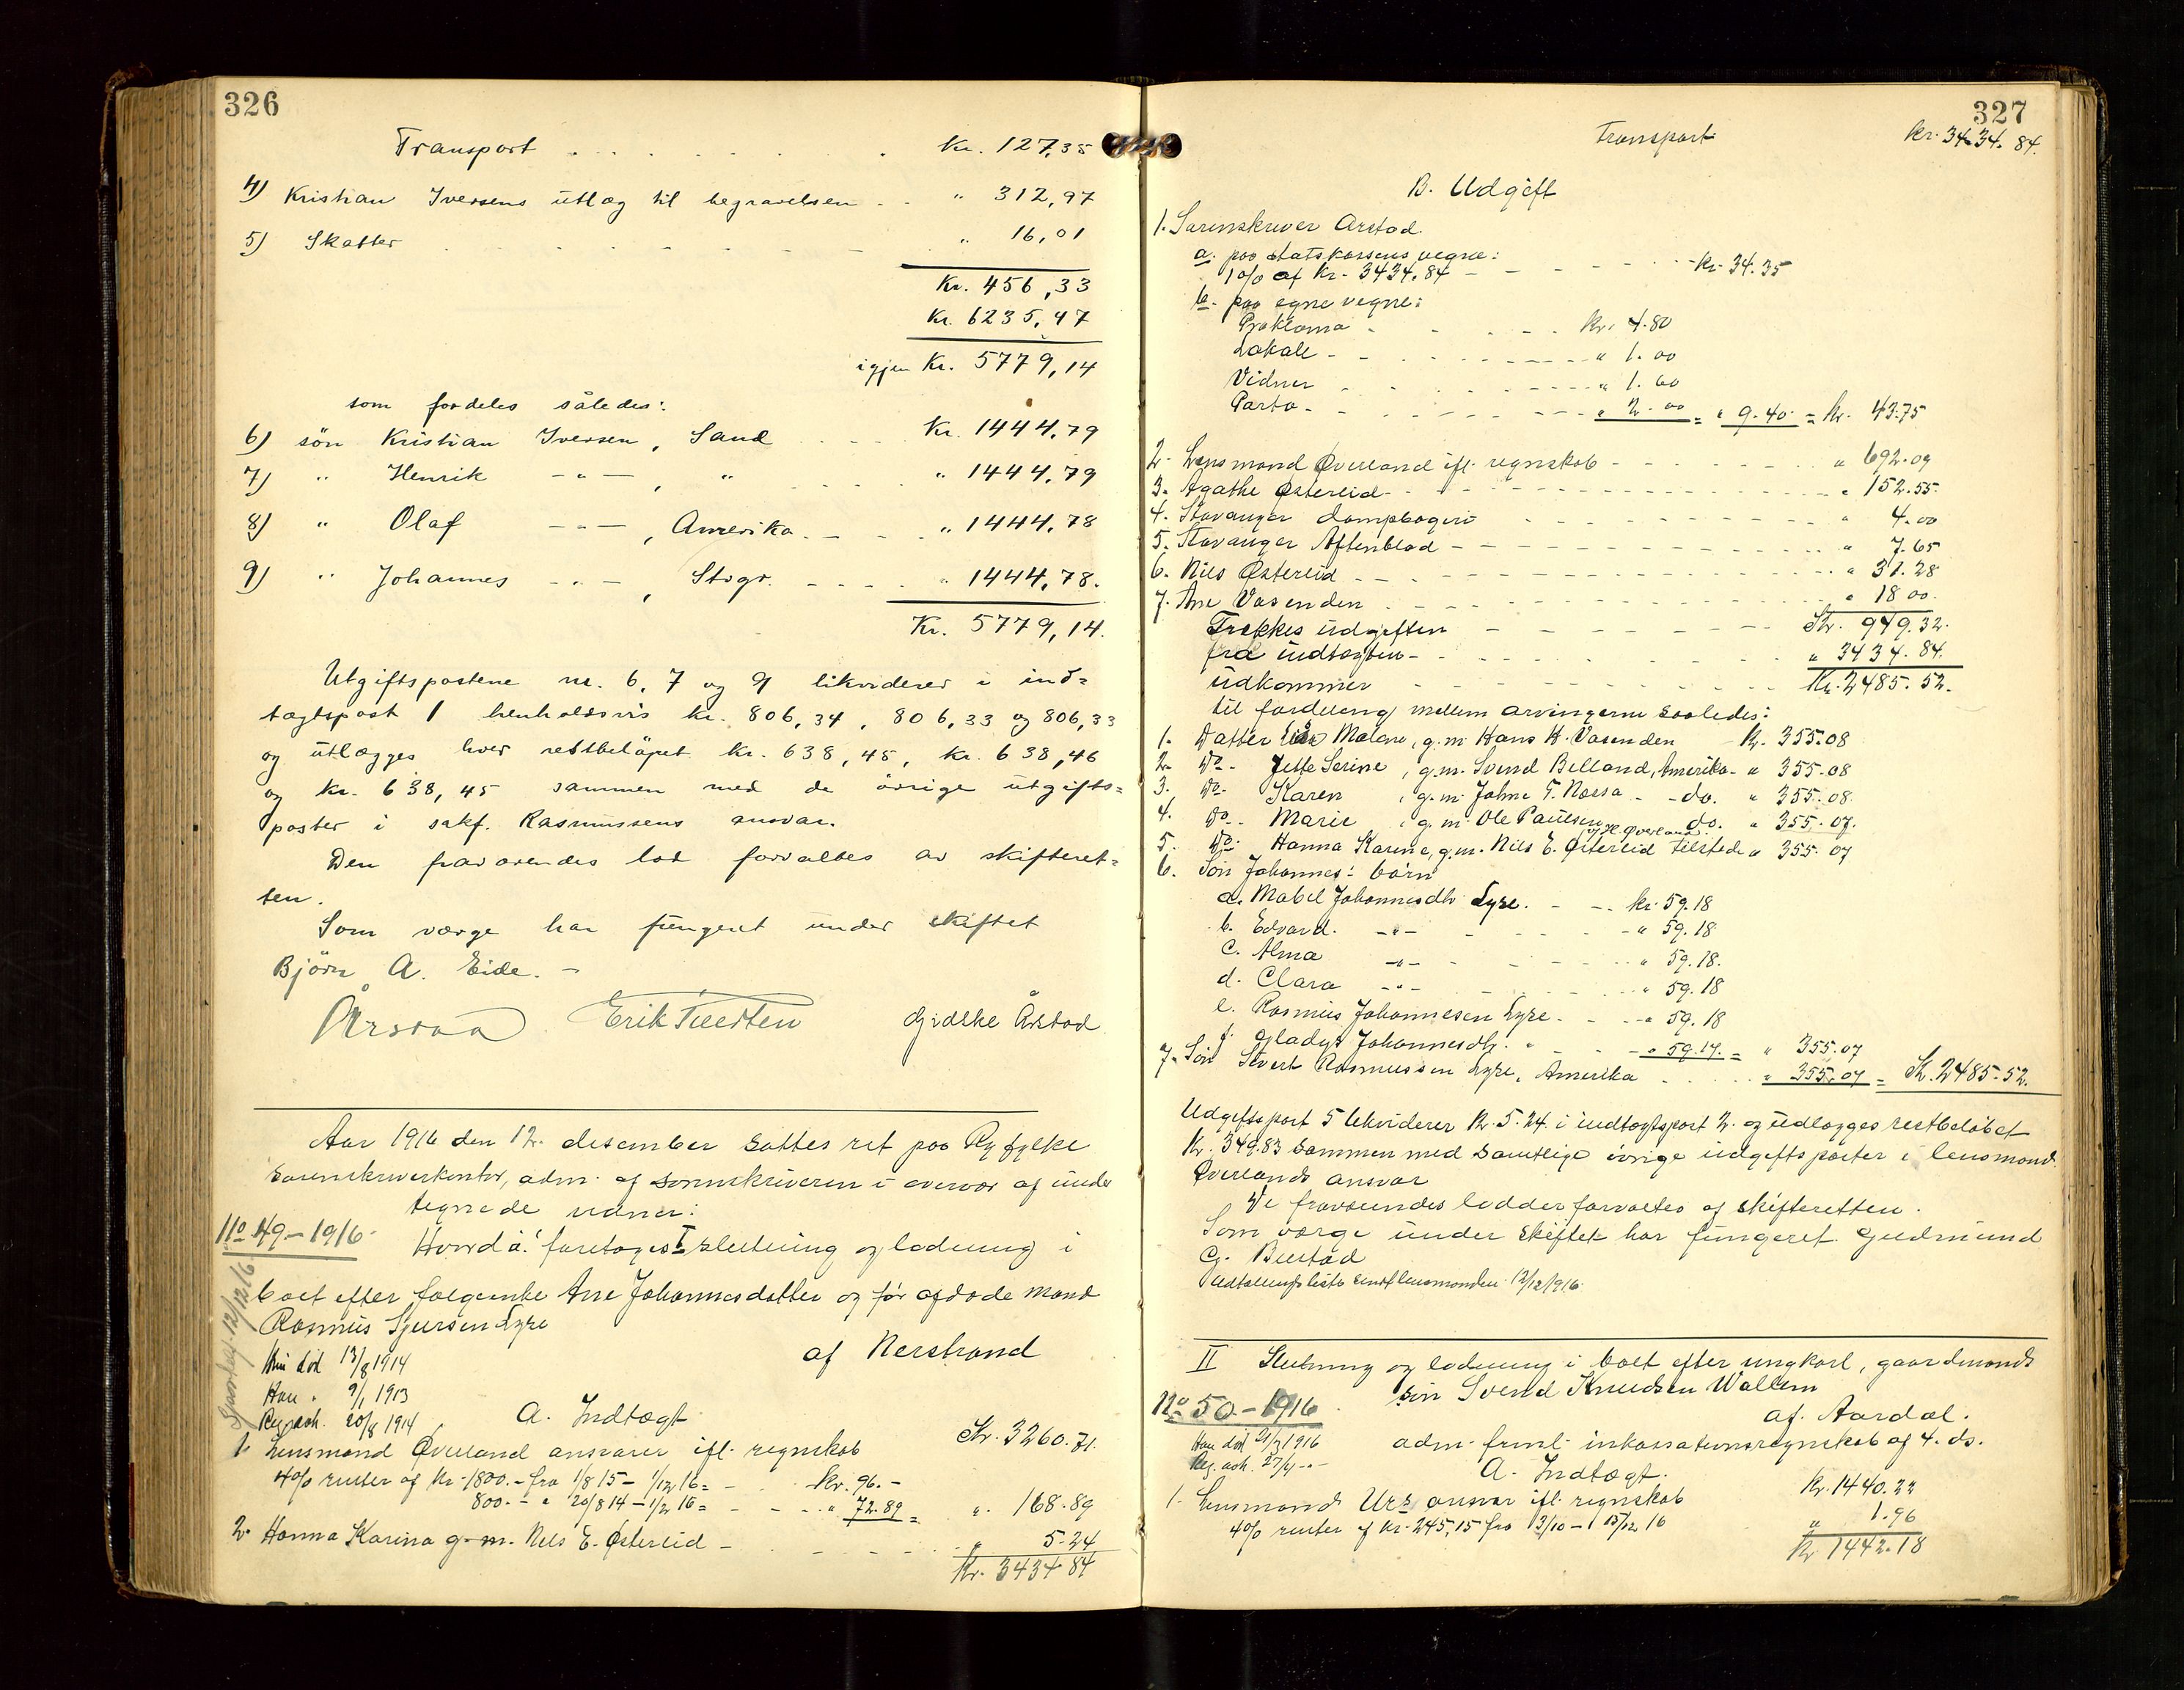 326
Transport . . . . . . . . Kr. 127,35
4) Kristian Iversens utlæg til begravelsen - - " 312,97
5) Skatter - - - - - - " 16,01
Kr. 456,33
Kr. 6235,47
igjen Kr. 5779,14
som fordeles således:
6) sön Kristian Iversen, Sand . . . . Kr. 1444,79
7) " Henrik - " - , " . . . . " 1444,79
8) " Olaf - - - , Amerika - - - " 1444,78
9) " Johannes - " - , Stvgr. - - - - " 1444,78.
Kr. 5779,14.
Utgiftspostene nr. 6, 7 og 9 likviderer i ind-
tægtspost 1 henholdsvis kr. 806,34, 806,33 og 806,33
og utlægges hver restbelöpet kr. 638,45, kr. 638,46
og kr. 638,45 sammen med de övrige utgifts-
poster i sakf. Rasmussens ansvar.
Den fraværendes lod forvaltes av skifteret-
ten.
Som værge har fungert under skiftet
Björn A. Eide. -
Årstad Erik Tveeten Gjidske Årstad
Aar 1916 den 12. desember sattes ret paa Ryfylke
sorenskriverkontor, adm. af sorenskriveren i overvær af under
tegnede vidner:
No 49 - 1916. Hvorda: foretoges I Slutning og lodning i
boet efter folgeenke Ane Johannesdatter og før afdøde mand
Rasmus Sjursen Lyse
af Nerstrand
Hun död 13/8 1914
Han " 9/1 1913
Reg. avh. 20/8 1914
12/12/16
A. Indtægt
1. Lensmand Øverland ansvarer ifl. regnskab Kr. 3260.71.
4% renter af kr. 1800.- fra 1/8 15 - 1/12 16 = - kr. 96.-
800.- " 20/8 14 - 1/12 16 = - - - " 72.89 = " 168.89
2. Hanna Karina g. m. Nels E. Østereid - - - - - " 5.24
Kr. 3434.84
327
Transport kr. 3434.84.
B. Udgift
1. Sorenskriver Arstad.
a. paa statskassens vegne:
1% af kr. 3434.84 - - - - - kr. 34.35
b. paa egne vegne:
Proklama - - - - - kr. 4.80
Lokale - - - - - - " 1.00
Vidner - - - - - - " 1.60
Porto - - - - - - " 2.00 = " 9.40 = kr. 43.75
2. Lensmand Øverland ifl. regnskab - - - - - " 692.09
3. Agathe Østereid - - - - - - " 152.55.
4. Stavanger dampbageri - - - - - " 4.00
5. Stavanger Aftenblad - - - - - " 7.65
6. Nils Østereid - - - - - - " 31.28
7. Ane Vasenden - - - - - - " 18 00.
Trækkes udgiften - - - - - Kr. 949.32.
fra indtægten - - - - - - " 3434.84.
udkommer - - - - - - Kr. 2485.52.
til fordeling mellem arvingerne saaledes:
1. Datter Malene, g. m. Hans H. Vasenden Kr. 355.08
2. Do. Jette Serine, g. m. Svend Belland, Amerika - " 355.08
3. Do. Karen, g. m. Johne T. Næssa - - do. " 355.08.
4. Do. Marie, g. m. Ole Paulsen do. " 355.07.
5. Do. Hanna Karine, g. m. Nils E. Østereid tilstede " 355.07
6. Sön Johannes' börn
a. Mabel Johannesdtr Lyse. - - kr. 59.18
b. Edvard. - " - - - - " 59.18
c. Alma - " - - - - " 59.18.
d. Clara - " - - - - " 59.18
e. Rasmus Johannesen Lyse - - - " 59.18
f. Gladys Johannesdtr. " - - - " 59.17. = " 355.07
7. Sön Sivert Rasmussen Lyse, Amerika . . . . " 355.07 = Kr. 2485.52.
Udgiftspost 5 likviderer kr. 5.24. i indtægtspost 2. og udlægges restbelöbet
Kr. 349.83 sammen med samtlige övrige udgiftsposter i lensmand
Øverlands ansvar
De fraværendes lodder forvaltes af skifteretten.
Som værge under skiftet har fungeret Gudmund
G. Bustad
Udtællingsliste sendt lensmanden 12/12 1916.
II Slutning og lodning i boet efter ungkarl, gaardmands
sön Svend Knudsen Wallem
No 50 - 1916
af Aardal.
Han död 21/3 1916
Reg. avh. 27/4 - " -
adm. freml. inkassationsregnskab af 4. ds.
A. Indtægt.
1. Lensmand Urs ansvar ifl. regnskab kr. 1440.22
4% renter af kr. 245,15 fra 3/10 - 15/12 16 " 1.96
Kr. 1442.18